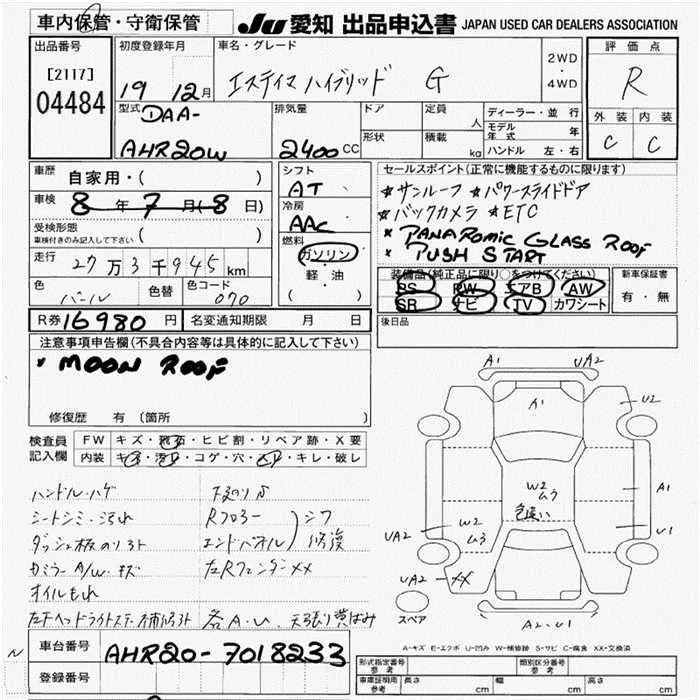 車内保管・守衛保管
JU 愛知 出品申込書 JAPAN USED CAR DEALERS ASSOCIATION
出品番号
[2117]
04484
初度登録年月
19 12月
車名・グレード
エスティマ ハイブリッド G
2WD
・
4WD
評価点
R
外装 内装
C C
型式
DAA-
AHR20W
排気量
2400CC
ドア
形状
定員
人
積載
kg
ディーラー・並行
モデル年式 年
ハンドル 左・右
車歴
自家用・( )
車検
8年7月(8日)
受検形態
車検付きのみ記入して下さい ( )
走行
27万3千945km
色
パール
色替
色コード
070
シフト
AT
冷房
AAC
燃料
ガソリン
・
軽・油
( )
セールスポイント(正常に機能するものに限ります)
*サンルーフ *パワースライドドア
*バックカメラ *ETC
* PANAROMIC GLASS ROOF
* PUSH START
装備品(純正品に限り○をつけてください)
PS PW エアB AW
SR ナビ TV カワシート
新車保証書
有・無
R券 16980円
名変通知期限 月 日
後日品
注意事項申告欄(不具合内容等は具体的に記入して下さい)
* MOON ROOF
修復歴 有 (箇所
検査員記入欄
FW キズ・飛石・ヒビ割・リペア跡・X要
内装 キズ・汚れ・コゲ・穴・スレ・キレ・破レ
ハンドル・ハゲ
シートシミ・汚れ
ダッシュ板のりヨト
カミラーA/W・キズ
オイルもれ
Rフロアー
エンドパネル
シワ
修復
左RフェンダーXX
各A・U. 天張り黄ばみ
A1 UA2
A1
U2
W2
ムラ
色違い
A1
U1
W2
ムラ
UA2
UA2
XX
A2・U1
スペア
A-キズ E-エクボ U-凹み W-補修跡 S-サビ C-腐食 XX-交換済
N
車台番号
AHR20-7018233
登録番号
形式指定番号
参考
類別区分番号
参考
車庫証明用
参考
長さ cm
幅 cm
高さ cm